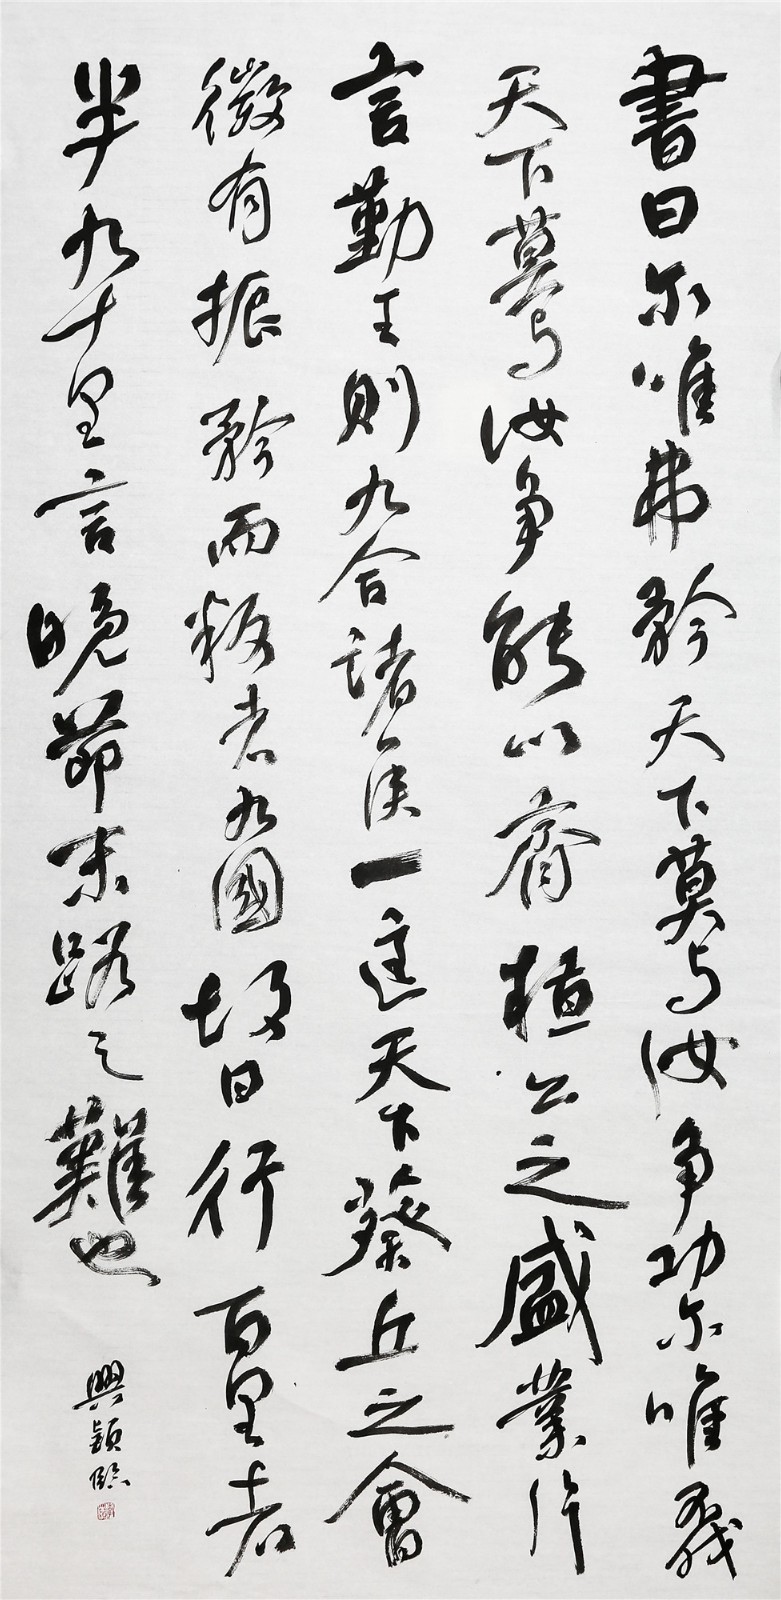 書曰尔唯弗矜天下莫与汝争功尔唯不伐
天下莫与汝争能以齊桓公之盛業片
言勤王則九合諸侯一匡天下葵丘之會
微有振矜而叛者九國故曰行百里者
半九十里言晚節末路之難也
興穎臨